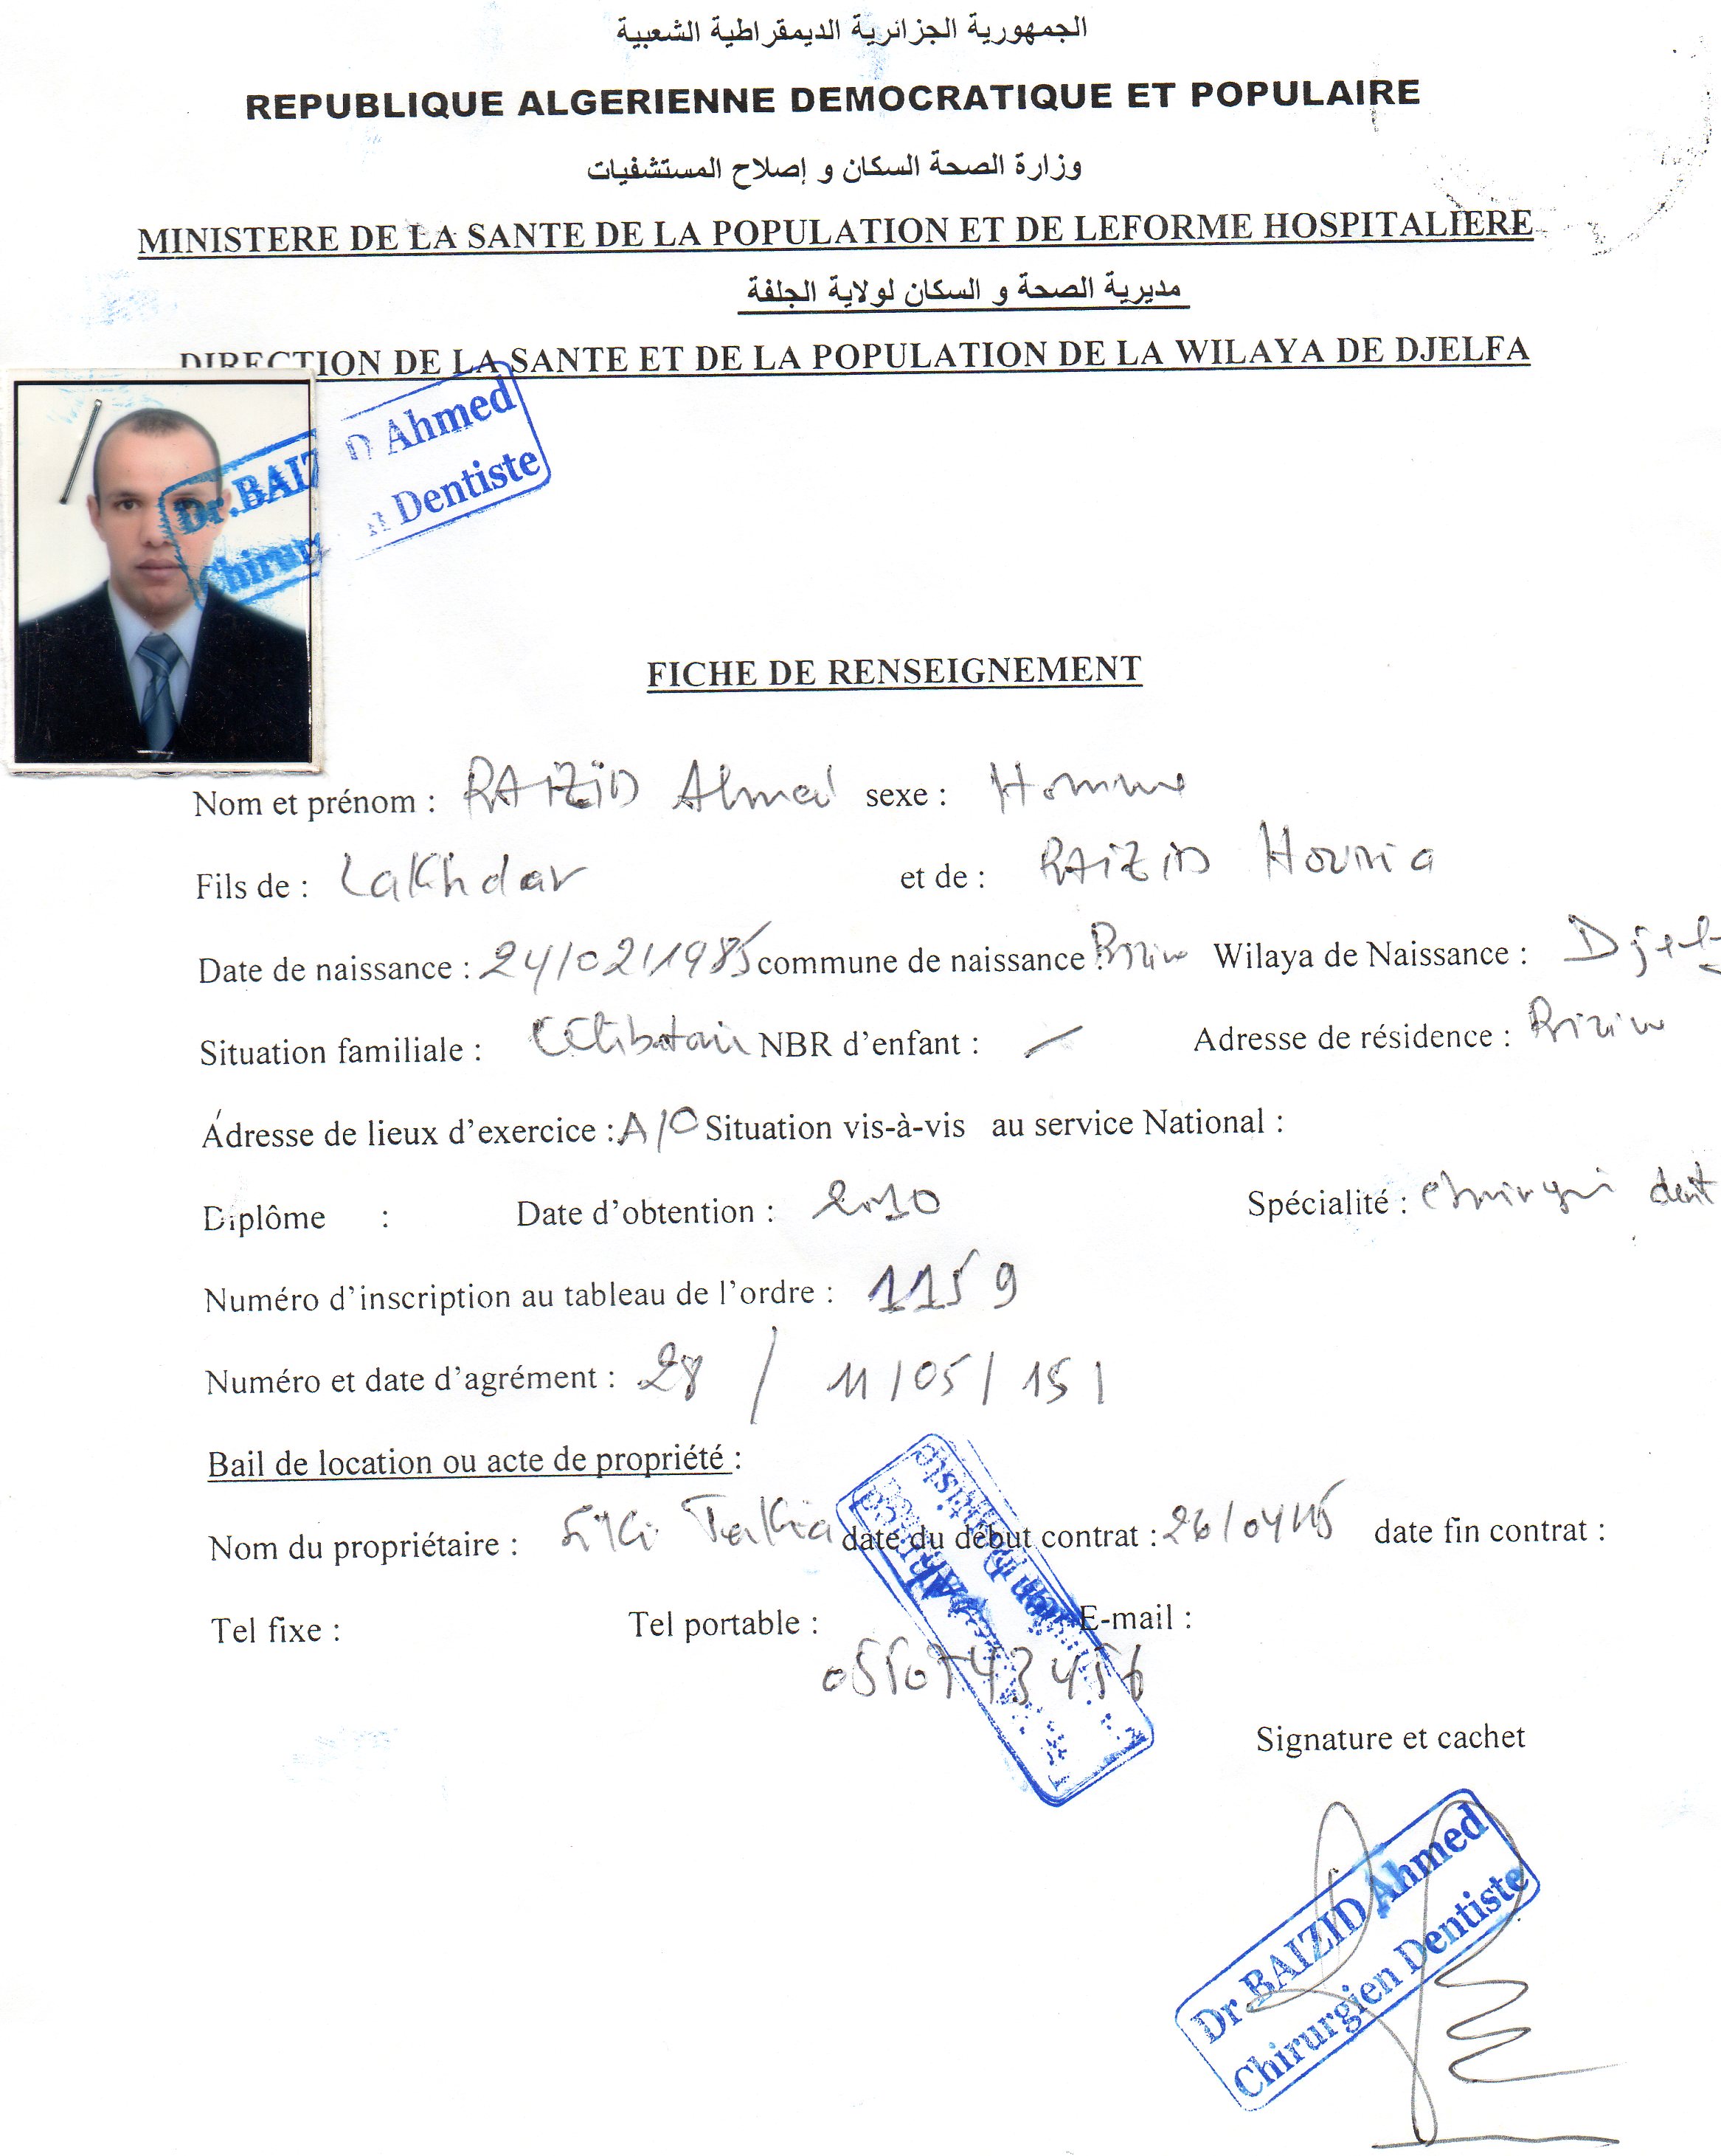 الجمهورية الجزائرية الديمقراطية الشعبية
REPUBLIQUE ALGERIENNE DEMOCRATIQUE ET POPULAIRE
وزارة الصحة السكان و إصلاح المستشفيات
MINISTERE DE LA SANTE DE LA POPULATION ET DE LEFORME HOSPITALIERE
مديرية الصحة و السكان لولاية الجلفة
DIRECTION DE LA SANTE ET DE LA POPULATION DE LA WILAYA DE DJELFA
Dr.BAIZ D Ahmed
Chirurg n Dentiste
FICHE DE RENSEIGNEMENT
Nom et prénom : BAIZID Ahmed sexe : Homme
Fils de : Lakhdar et de : BAIZID Houria
Date de naissance : 24/02/1985 commune de naissance : Wilaya de Naissance : Djelf
Situation familiale : Célibatair NBR d'enfant : / Adresse de résidence :
Adresse de lieux d'exercice : A/O Situation vis-à-vis au service National :
Diplôme : Date d'obtention : 2010 Spécialité : chirurgi dent
Numéro d'inscription au tableau de l'ordre : 1159
Numéro et date d'agrément : 28 / 11/05/15/
Bail de location ou acte de propriété :
Nom du propriétaire : date du début contrat : 26/04/15 date fin contrat :
Tel fixe : Tel portable : E-mail :
Signature et cachet
Dr BAIZID Ahmed
Chirurgien Dentiste